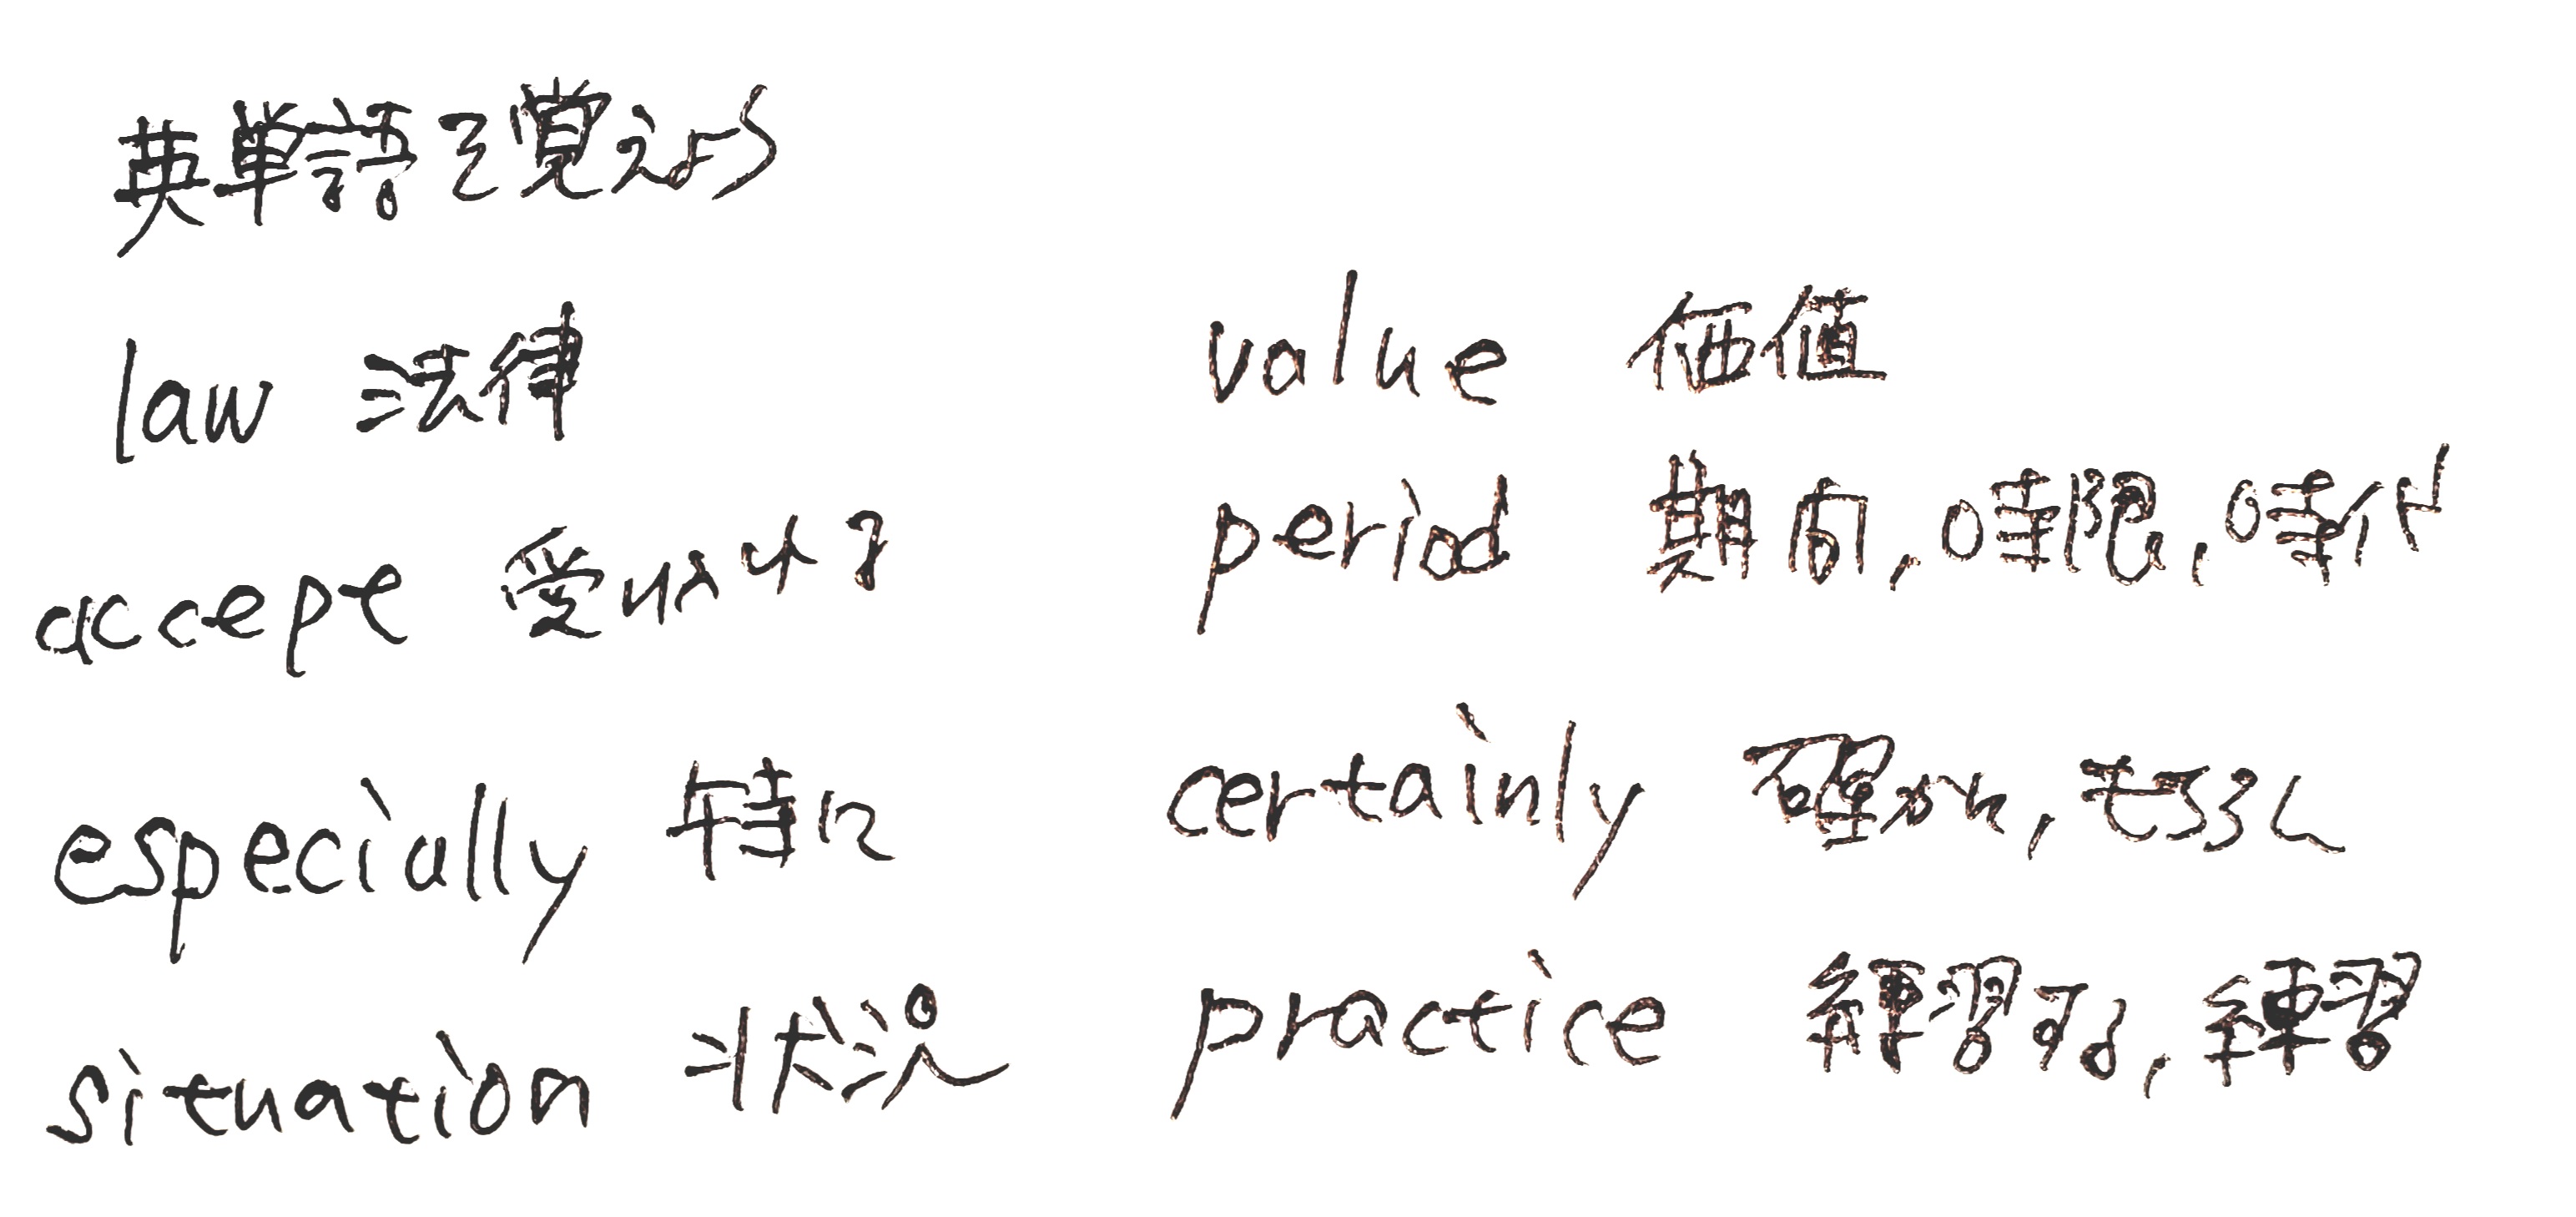 英単語を覚えよう
law 法律
accept 受け入れる
especially 特に
situation 状況
value 価値
period 期間,時限,時代
certainly 確かに,もちろん
practice 練習する,練習